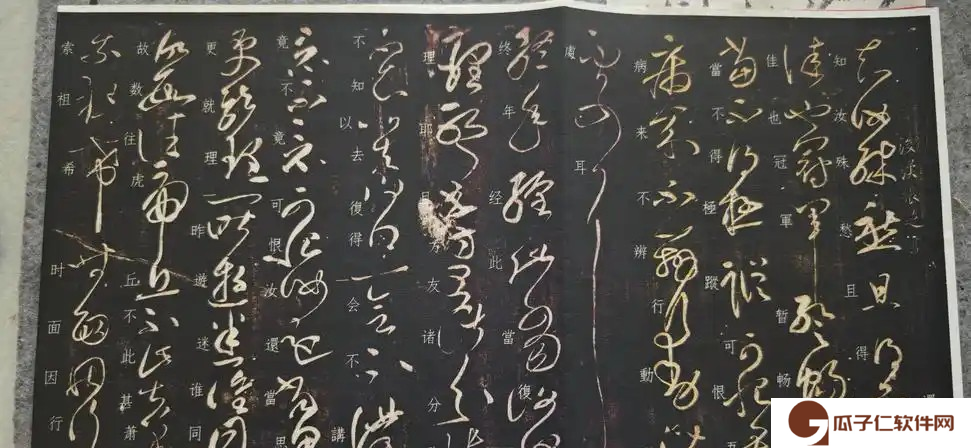 後漢張芝書
知汝殊愁且得還
佳也冠軍暫暢
當不得極蹤可恨吾
病來不辨行動
處耳
終年经此當復
理耶且方友諸分
不知以去復得一会不講
竟不竟可恨汝還當思
更就理一昨遊迷谁同
故数往虎丘不此甚萧
索祖希时面因行
瓜子仁软件网